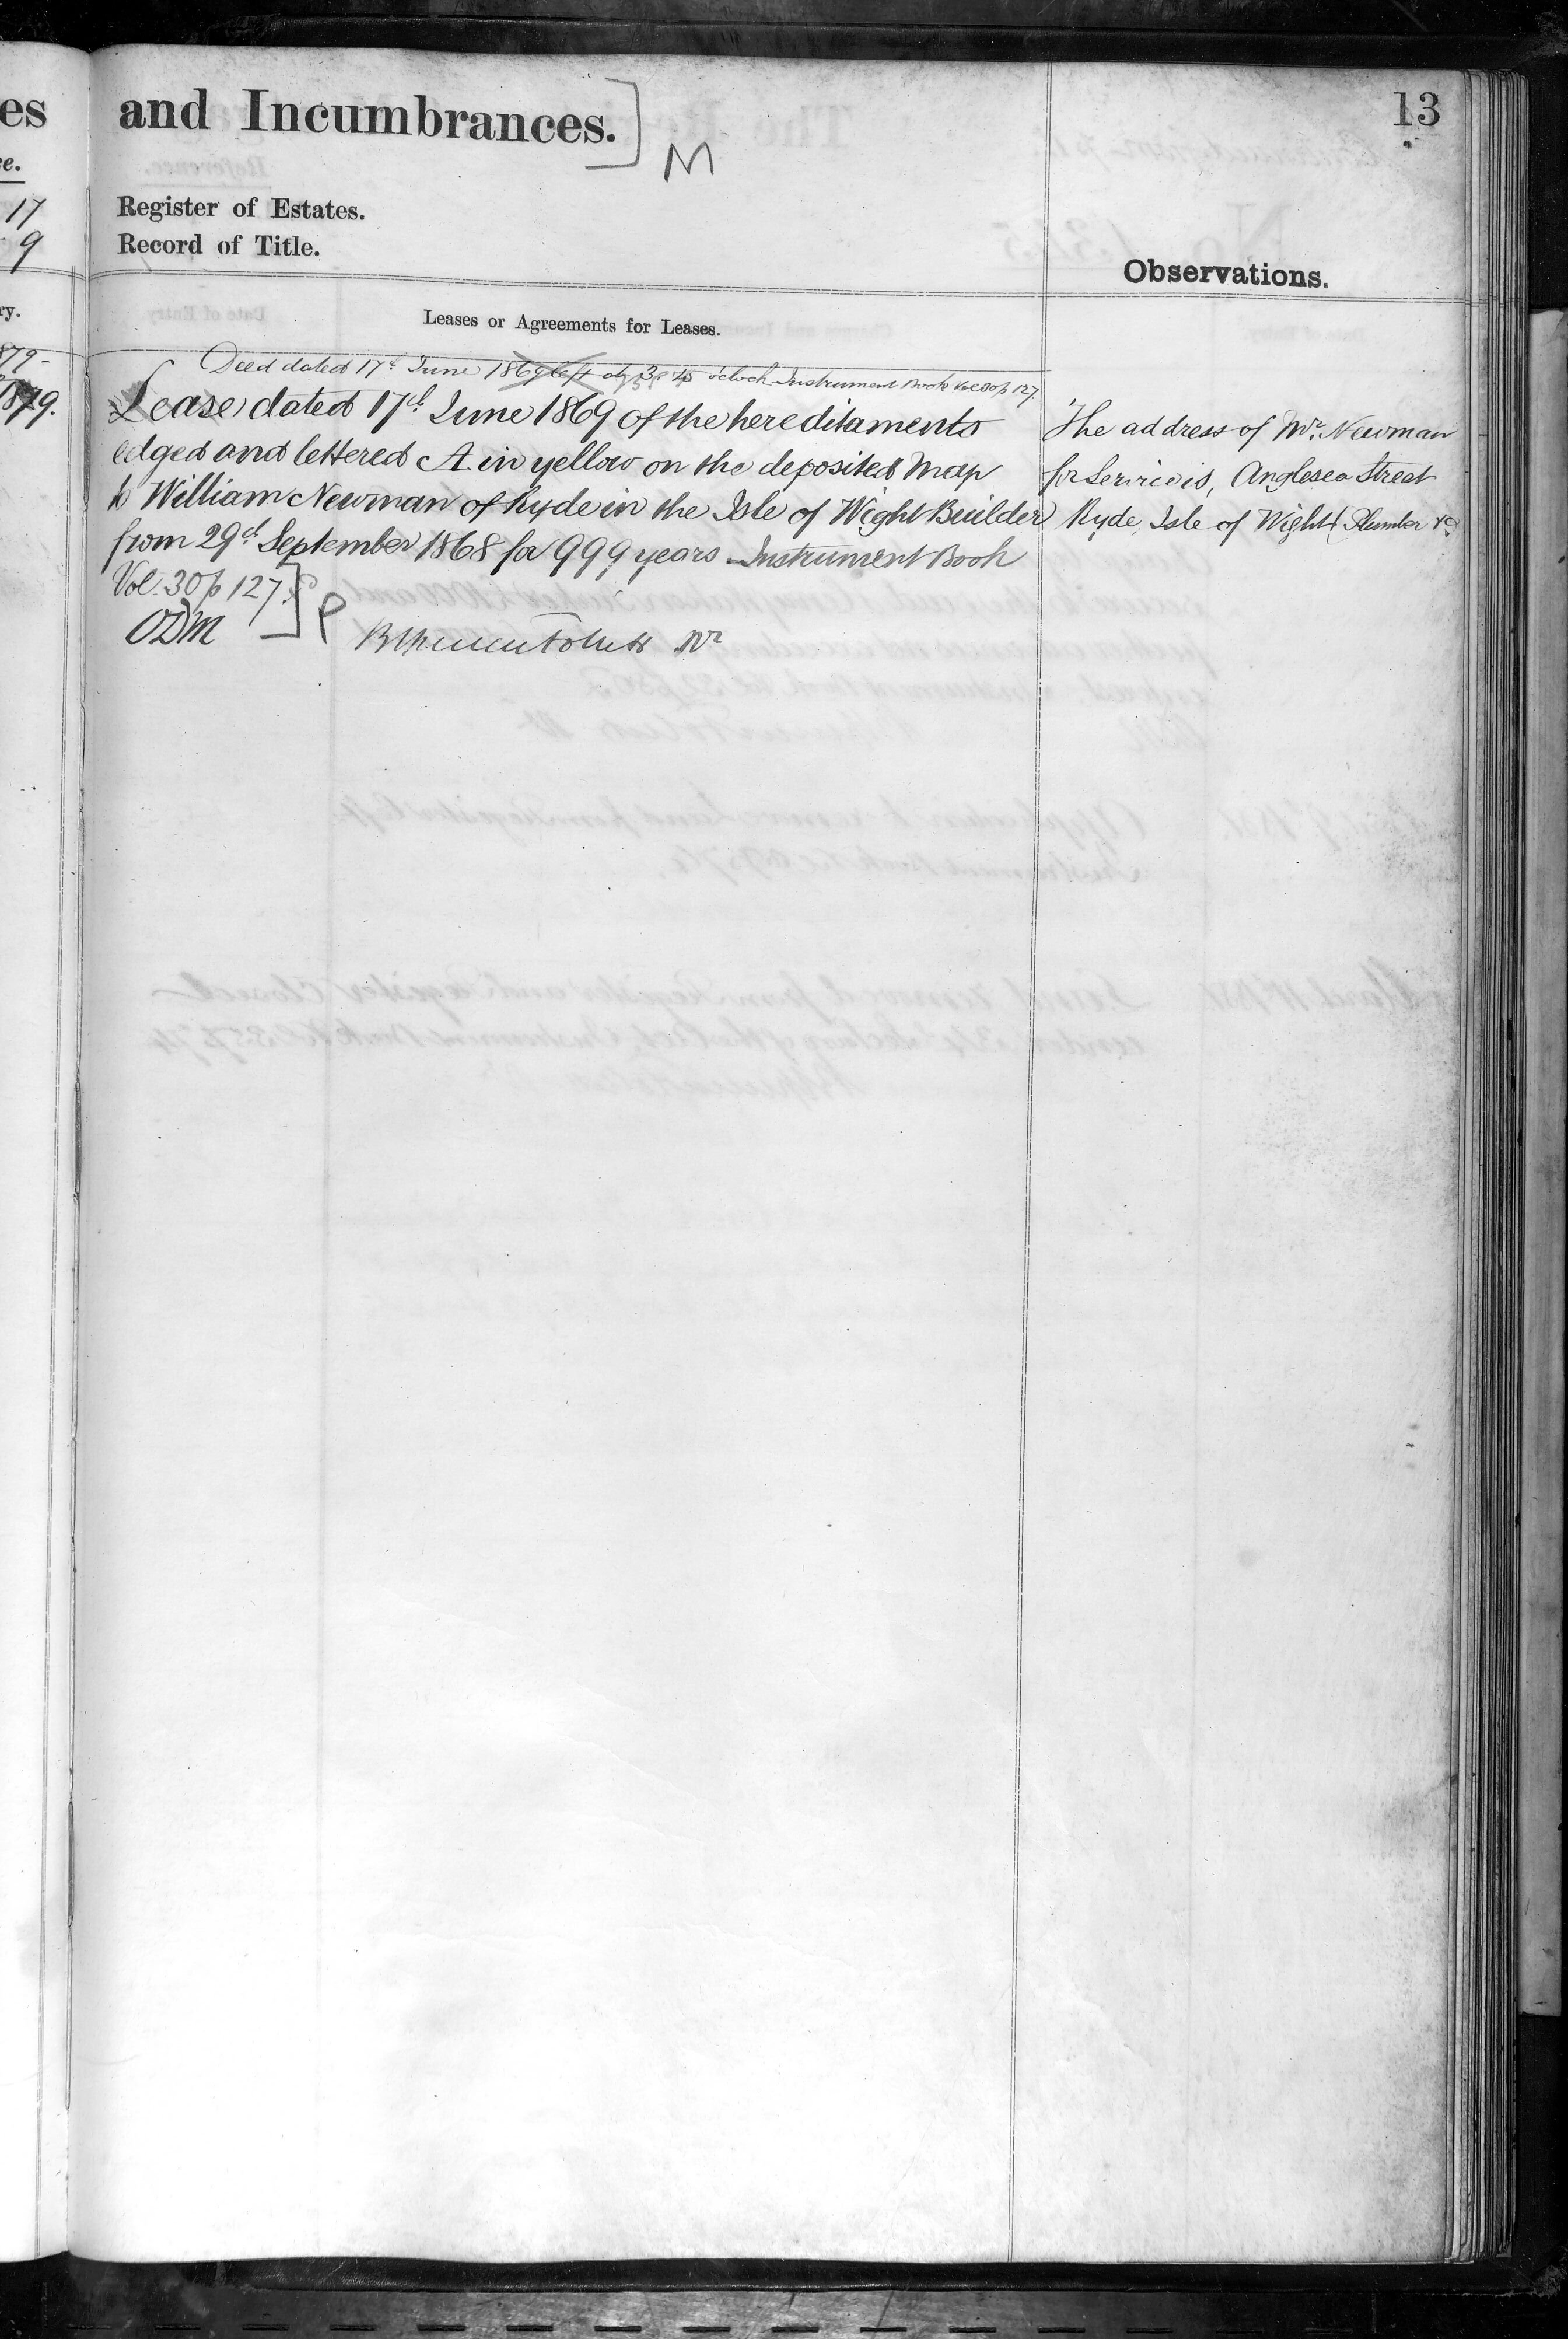 es
and Incumbrances.]
13
M
e.
17
Register of Estates.
9
Record of Title.
Observations.
ry.
Leases or Agreements for Leases.
879-
1879.
Deed dated 17th June 1869 left at 3.45 o'clock Instrument Book Vol 30 p 127.
Lease dated 17th June 1869 of the hereditaments
edged and lettered A. in yellow on the deposited Map
to William Newman of Ryde in the Isle of Wight Builder
from 29th September 1868 for 999 years Instrument Book
Vol. 30 p 127.]
ODM
P
The address of Mr. Newman
for Service is, Anglesea Street
Ryde, Isle of Wight (Plumber &c)